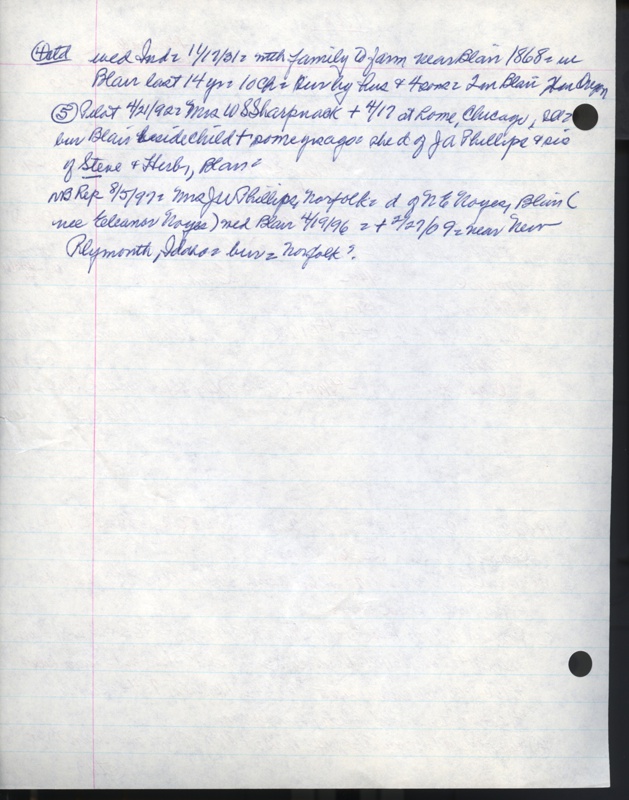 ④ctd wed Ind = 11/17/51 = with family to farm near Blair 1868 = in
Blair last 14 yr = 10 ch = surv by hus & 4 sons = 2 in Blair
⑤ Pilot 4/21/92 = Mrs W S Sharpnack + 4/17 at home, Chicago,
bur Blair beside child + some yrs ago = she d of J A Phillips & sis
of Steve & Herb, Blair =
NB Rep 8/5/97 = Mrs J W Phillips, Norfolk = d of N E Noyes, Blair (
nee Eleanor Noyes) wed Blair 4/19/96 = + 2/27/09 = near New
Plymouth, Idaho = bur = Norfolk?.